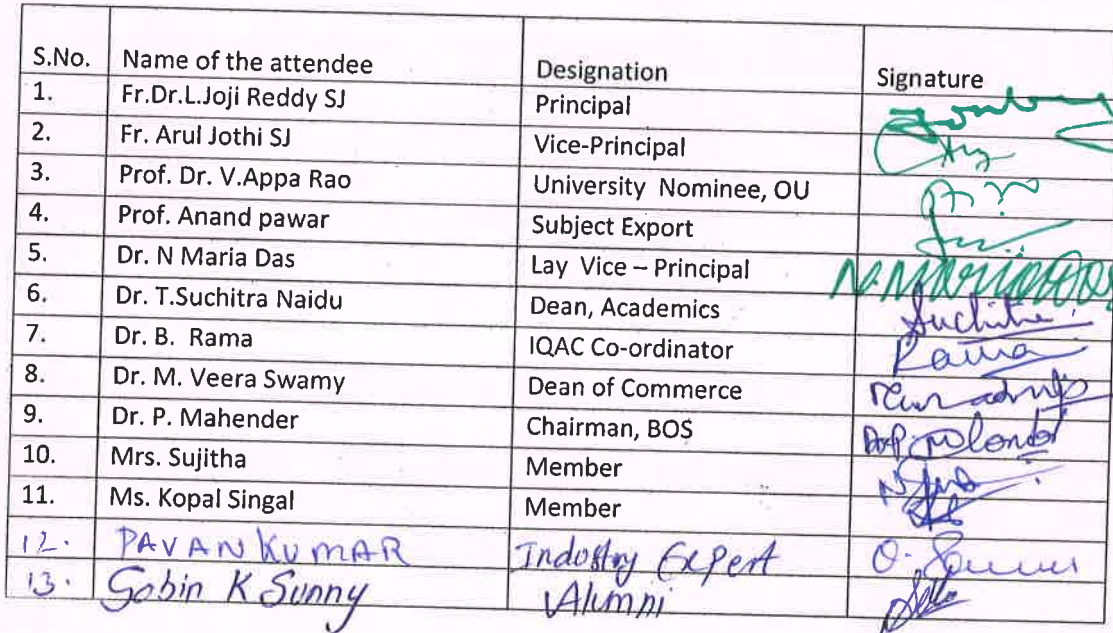 S.No. Name of the attendee Designation Signature
1. Fr.Dr.L.Joji Reddy SJ Principal
2. Fr. Arul Jothi SJ Vice-Principal
3. Prof. Dr. V.Appa Rao University Nominee, OU
4. Prof. Anand pawar Subject Export
5. Dr. N Maria Das Lay Vice – Principal N. MariaDas
6. Dr. T.Suchitra Naidu Dean, Academics Suchitra
7. Dr. B. Rama IQAC Co-ordinator Rama
8. Dr. M. Veera Swamy Dean of Commerce
9. Dr. P. Mahender Chairman, BOS
10. Mrs. Sujitha Member
11. Ms. Kopal Singal Member
12. PAVAN KUMAR Industry Expert
13. Gobin K Sunny Alumni